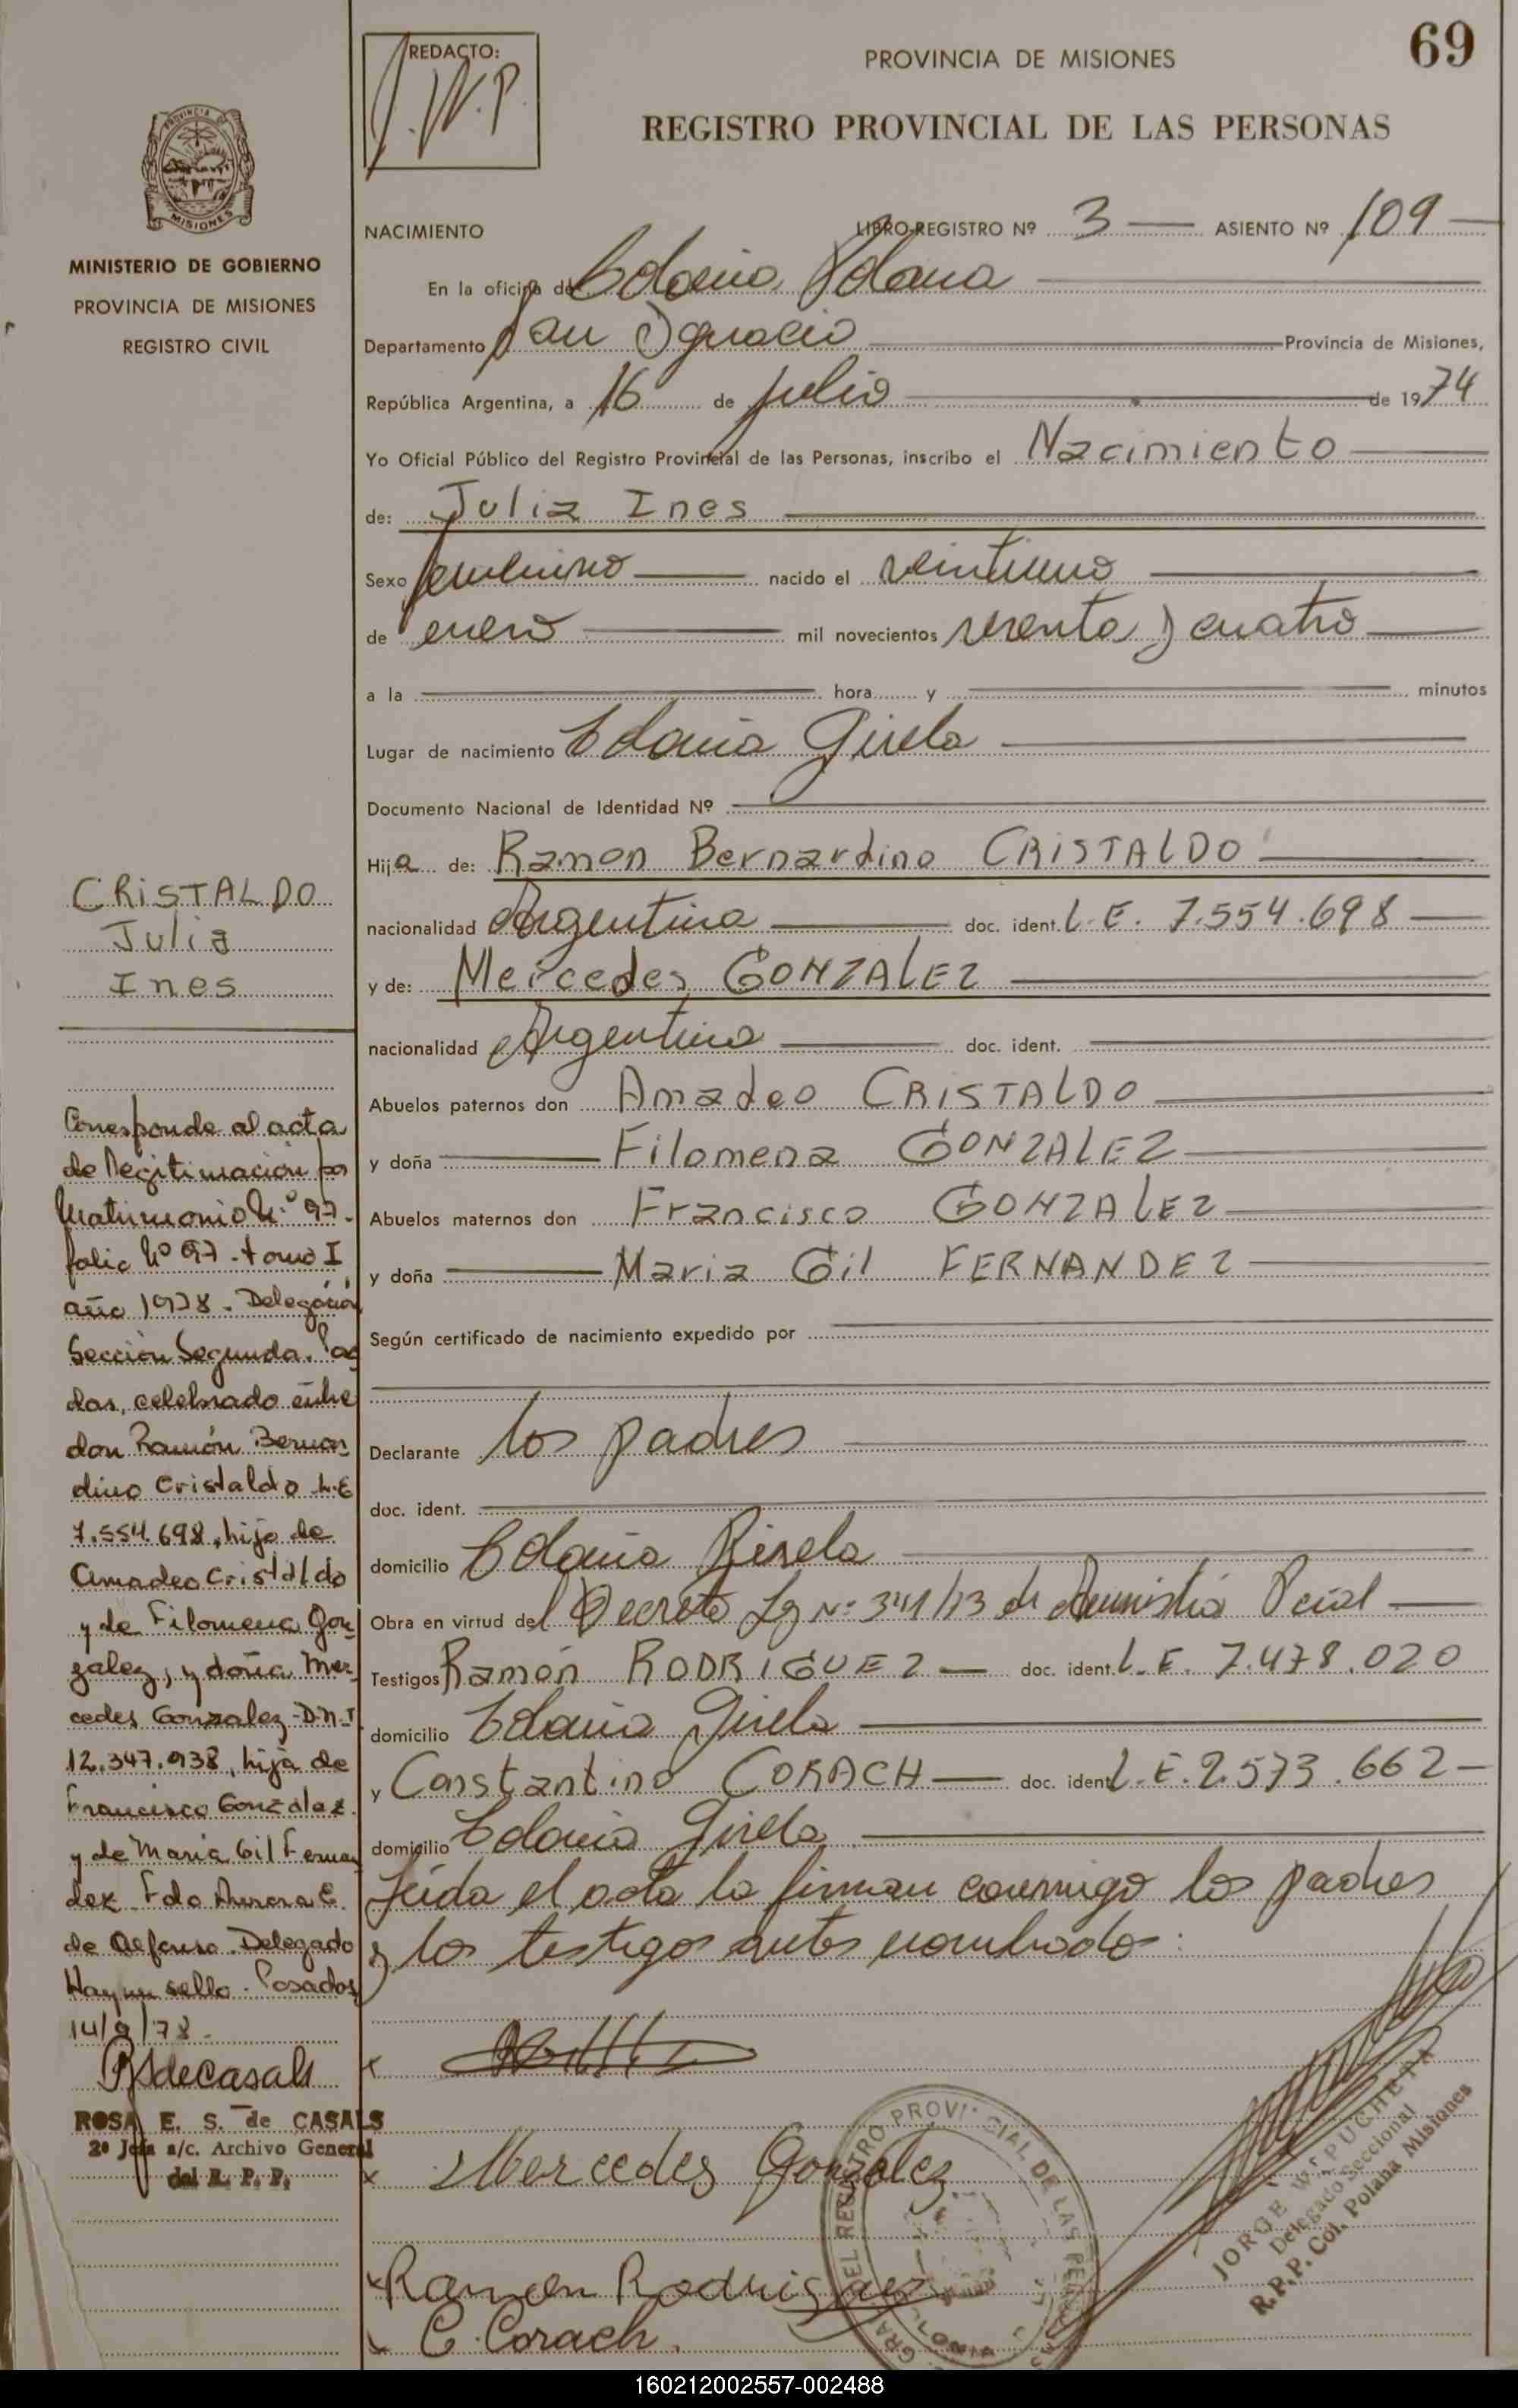 69
REDACTO:
J.W.P.
PROVINCIA DE MISIONES
REGISTRO PROVINCIAL DE LAS PERSONAS
PROVINCIA DE
MISIONES
MINISTERIO DE GOBIERNO
PROVINCIA DE MISIONES
REGISTRO CIVIL
NACIMIENTO LIBRO-REGISTRO Nº 3 ASIENTO Nº 109
En la oficina de Colonia Polana
Departamento San Ignacio Provincia de Misiones,
República Argentina, a 16 de julio de 1974
Yo Oficial Público del Registro Provincial de las Personas, inscribo el Nacimiento
de: Julia Ines
Sexo femenino nacido el veintiuno
de enero mil novecientos setenta y cuatro
a la hora y minutos
Lugar de nacimiento Colonia Gisela
Documento Nacional de Identidad Nº
Hija de: Ramon Bernardino CRISTALDO
nacionalidad Argentina doc. ident. L.E. 7.554.698
y de: Mercedes GONZALEZ
nacionalidad Argentina doc. ident.
Abuelos paternos don Amadeo CRISTALDO
y doña Filomena GONZALEZ
Abuelos maternos don Francisco GONZALEZ
y doña Maria Gil FERNANDEZ
Según certificado de nacimiento expedido por
Declarante los padres
doc. ident.
domicilio Colonia Gisela
Obra en virtud del Decreto Ley Nº de Amnistía Pcial
Testigos Ramón RODRIGUEZ doc. ident. L.E. 7.478.020
domicilio Colonia Gisela
y Constantino CORACH doc. ident. L.E. 2.573.662
domicilio Colonia Gisela
Leída el acta la firman conmigo los padres
y los testigos antes nombrados:
CRISTALDO
Julia
Ines
Corresponde al acta
de legitimación por
Matrimonio Nº 97.
folio Nº 97 - tomo I
año 1978 - Delegación
Sección Segunda. Posa
das, celebrado entre
don Ramón Bernar
dino Cristaldo L.E
7.554.698, hijo de
Amadeo Cristaldo
y de Filomena Gon
zalez, y doña Mer
cedes Gonzalez - D.N.I
12.347.938, hija de
Francisco Gonzalez
y de Maria Gil Fernan
dez. Fdo Aurora E.
de Alfonso. Delegado
Hay un sello. Posadas
14/9/78.
RSdeCasals
ROSA E. S. de CASALS
2º Jefa a/c. Archivo General
del R. P. P.
x
x Mercedes Gonzalez
x Ramon Rodriguez
x C. Corach.
DEL REGISTRO PROVINCIAL DE LAS
JORGE W. PUCHETA
Delegado Seccional
R.P.P. Col. Polana Misiones
160212002557-002488